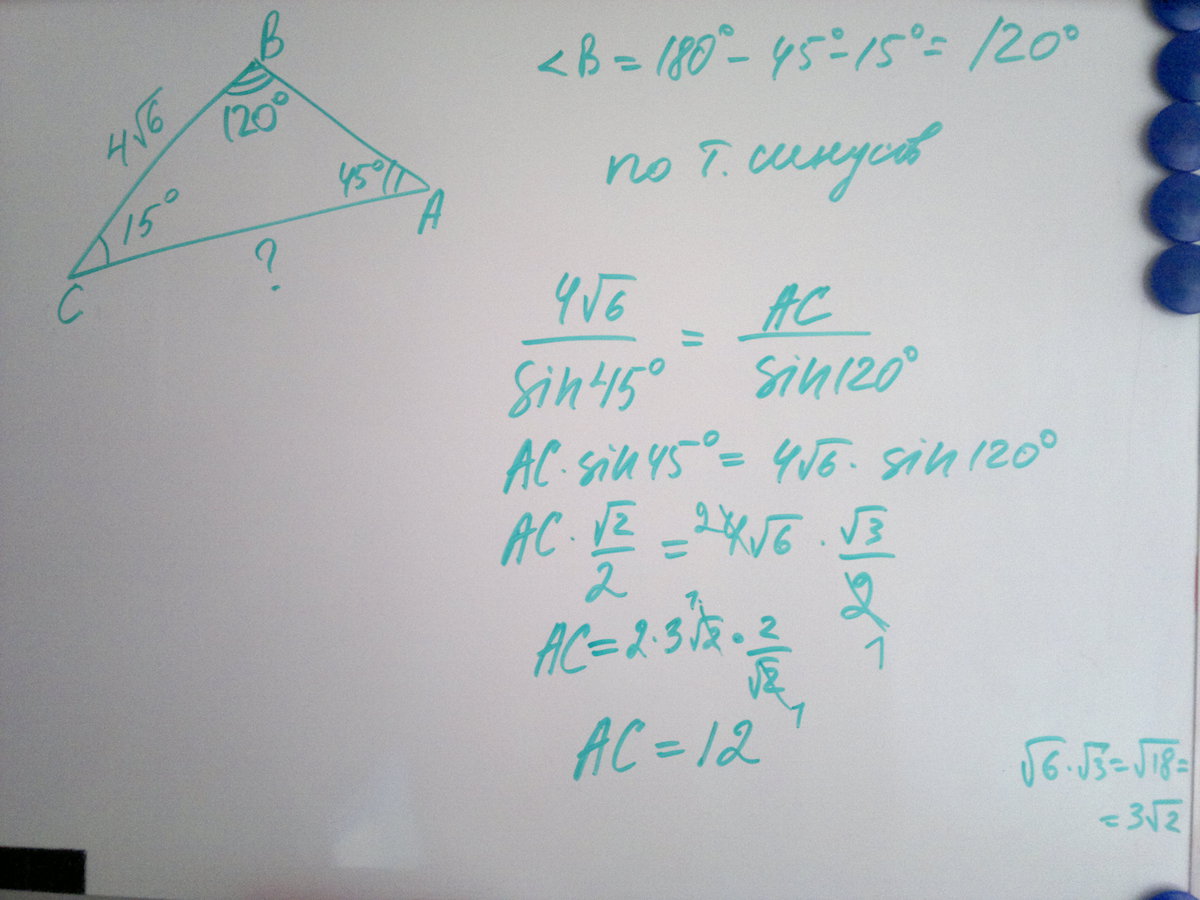 B
4√6
120°
45°
15°
A
?
C
∠B = 180° - 45° - 15° = 120°
по т. синусов
4√6 / sin45° = AC / sin120°
AC · sin45° = 4√6 · sin120°
AC · √2/2 = 2 4√6 · √3/2 1
AC = 2 · 3 1 √2 · 2/√2 1
AC = 12
√6 · √3 = √18 =
= 3√2